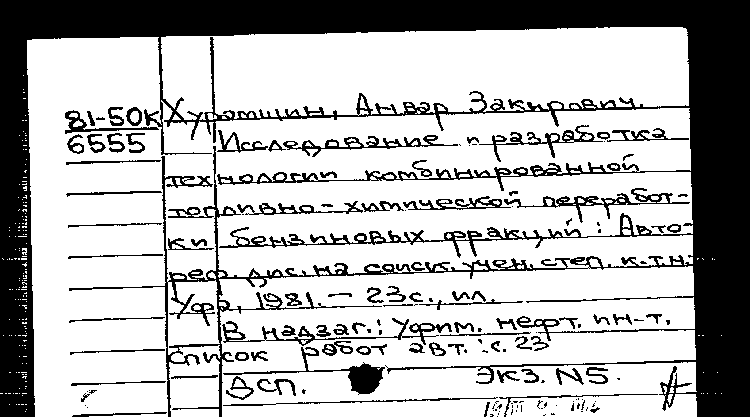 81-50к Хурамшин, Анвар Закирович.
6555 Исследование и разработка
технологии комбинированной
топливно-химической переработ-
ки бензиновых фракций: Авто-
реф. дис. на соиск. учен. степ. к.т.н.-
Уфа, 1981. - 23с., ил.
В надзаг.: Уфим. нефт. ин-т.
Список работ авт.: с. 23
Дсп. Экз. N5.